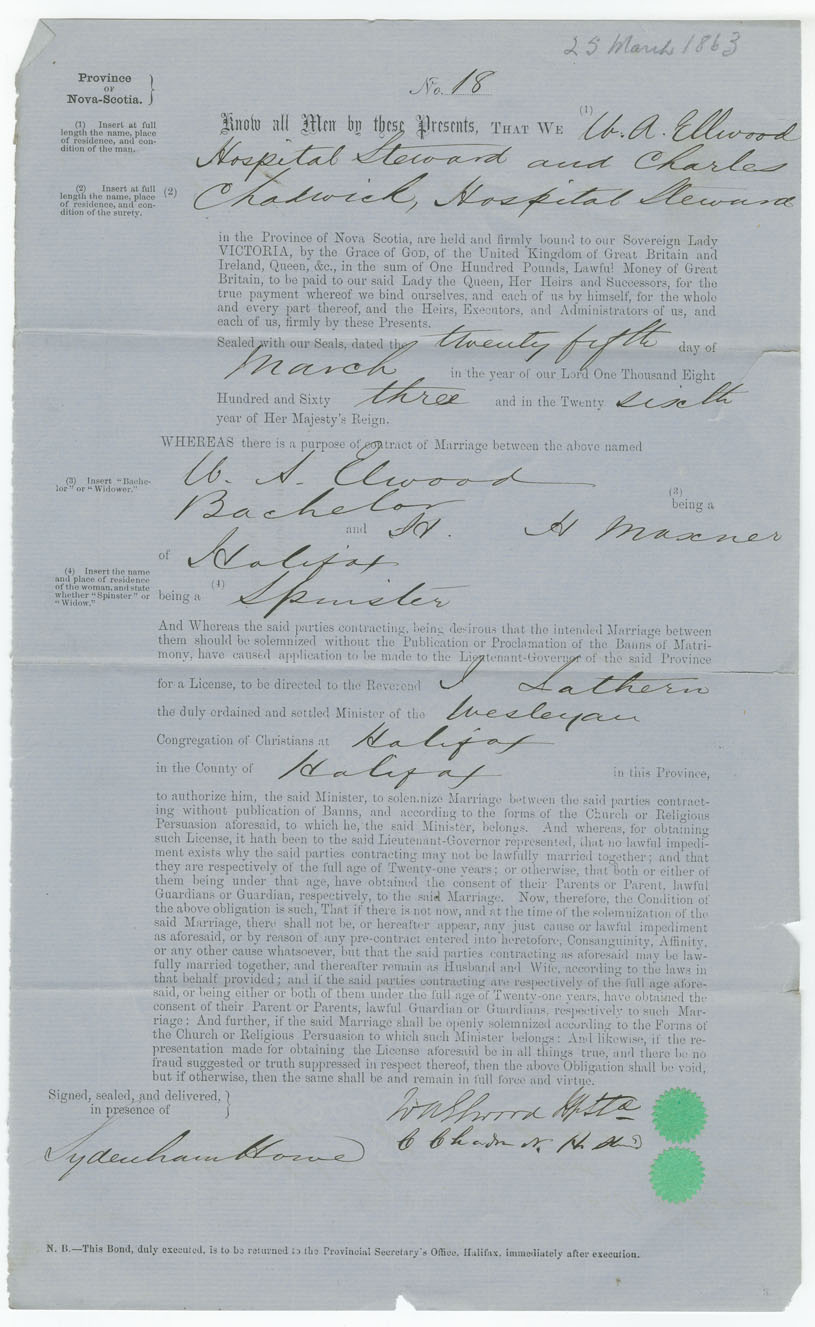 25 March 1863
Province
OF
Nova-Scotia.
No. 18
(1) Insert at full
length the name, place
of residence, and con-
dition of the man.
Know all Men by these Presents, THAT WE (1) W. A. Ellwood
Hospital Steward and Charles
(2) Insert at full
length the name, place
of residence, and con-
dition of the surety.
(2) Chadwick, Hospital Steward
in the Province of Nova Scotia, are held and firmly bound to our Sovereign Lady
VICTORIA, by the Grace of GOD, of the United Kingdom of Great Britain and
Ireland, Queen, &c., in the sum of One Hundred Pounds, Lawful Money of Great
Britain, to be paid to our said Lady the Queen, Her Heirs and Successors, for the
true payment whereof we bind ourselves, and each of us by himself, for the whole
and every part thereof, and the Heirs, Executors, and Administrators of us, and
each of us, firmly by these Presents.
Sealed with our Seals, dated the twenty fifth day of
March in the year of our Lord One Thousand Eight
Hundred and Sixty three and in the Twenty sixth
year of Her Majesty's Reign.
WHEREAS there is a purpose of contract of Marriage between the above named
W. A. Elwood
(3) Insert "Bache-
lor" or "Widower."
(3)
being a
Bachelor
and H. H Maxner
of Halifax
(4) Insert the name
and place of residence
of the woman, and state
whether "Spinster" or
"Widow."
being a (4) Spinster
And Whereas the said parties contracting, being desirous that the intended Marriage between
them should be solemnized without the Publication or Proclamation of the Banns of Matri-
mony, have caused application to be made to the Lieutenant-Governor of the said Province
for a License, to be directed to the Reverend J Lathern
the duly ordained and settled Minister of the Wesleyan
Congregation of Christians at Halifax
in the County of Halifax in this Province,
to authorize him, the said Minister, to solemnize Marriage between the said parties contract-
ing without publication of Banns, and according to the forms of the Church or Religious
Persuasion aforesaid, to which he, the said Minister, belongs. And whereas, for obtaining
such License, it hath been to the said Lieutenant-Governor represented, that no lawful impedi-
ment exists why the said parties contracting may not be lawfully married together; and that
they are respectively of the full age of Twenty-one years; or otherwise, that both or either of
them being under that age, have obtained the consent of their Parents or Parent, lawful
Guardians or Guardian, respectively, to the said Marriage. Now, therefore, the Condition of
the above obligation is such, That if there is not now, and at the time of the solemnization of the
said Marriage, there shall not be, or hereafter appear, any just cause or lawful impediment
as aforesaid, or by reason of any pre-contract entered into heretofore, Consanguinity, Affinity,
or any other cause whatsoever, but that the said parties contracting as aforesaid may be law-
fully married together, and thereafter remain as Husband and Wife, according to the laws in
that behalf provided; and if the said parties contracting are respectively of the full age afore-
said, or being either or both of them under the full age of Twenty-one years, have obtained the
consent of their Parent or Parents, lawful Guardian or Guardians, respectively to such Mar-
riage: And further, if the said Marriage shall be openly solemnized according to the Forms of
the Church or Religious Persuasion to which such Minister belongs: And likewise, if the re-
presentation made for obtaining the License aforesaid be in all things true, and there be no
fraud suggested or truth suppressed in respect thereof, then the above Obligation shall be void,
but if otherwise, then the same shall be and remain in full force and virtue.
Signed, sealed, and delivered,
in presence of
W A Ellwood
Sydenham Howe
N. B.—This Bond, duly executed, is to be returned to the Provincial Secretary's Office, Halifax, immediately after execution.